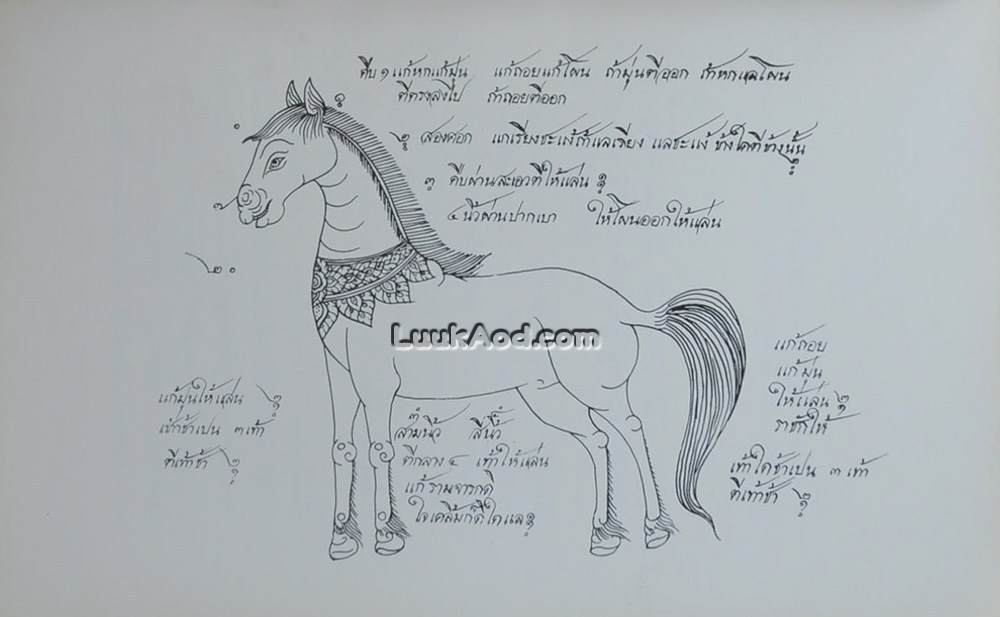 คืบ ๑ แก้หกแก้มุ่น แก้ถอยแก้โผน ถ้ามุ่นตีออก ถ้าหกแลโผน
ตีตรงลงไป ถ้าถอยตีออก
๒ สองศอก แกเรียงชะแง้ถ้าแลเรียง แลชะแง้ ข้างใดตีข้างนั้น
๓ คืบผ่านสะเอวตีให้แล่น
๔ นิ้วผ่านปากเบา ให้โผนออกให้แล่น
๒
LuukAod.com
แก้ถอย
แก้มุ่น
ให้แล่น
ราชักให้
แก้มุ่นให้แล่น
เท้าช้าเปน ๓ เท้า
ตีเท้าช้า
สามนิ้ว สี่นิ้ว
ตีกลาง ๔ เท้าให้แล่น
แก้
แล
เท้าใดช้าเปน ๓ เท้า
ตีเท้าช้า